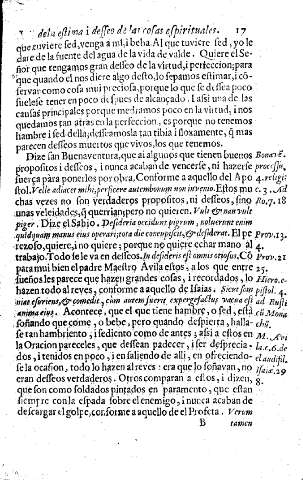 de la estima i desseo de las cosas espirituales. 17
que tuviere sed, venga a mi, i beba. Al que tuviere sed, yo le
daré de la fuente del agua de la vida de valde. Quiere el Se-
ñor que tengamos gran desseo de la virtud, i perfeccion; para
que quando el nos diere algo desto, lo sepamos estimar, i co-
servar como cosa mui preciosa, porque lo que se dessea poco
suelese tener en poco despues de alcançado. I assi una de las
causas principales porque medramos poco en la virtud, i nos
quedamos tan atras en la perfeccion, es porque no tenemos
hambre i sed della; desseamosla tan tibia i floxamente, q̃ mas
parecen desseos muertos que vivos, los que tenemos.
Dize san Buenaventura, que ai algunos que tienen buenos
propositos i desseos, i nunca acaban de vencerse, ni hazerse
fuerça para ponerlos por obra. Conforme a aquello del Apo
stol. Velle adiacet mihi, perficere autem bonum non invenio. Estos mu
chas vezes no son verdaderos propositos, ni desseos, sino
unas veleidades, q̃ querrian, pero no quieren. Vult & non vult
piger. Dize el Sabio. Desideria occidunt pigrum, noluerunt enim
quidquam manus eius operari; tota die concupiscit, & desiderat. El pe
rezoso, quiere, i no quiere; porque no quiere echar mano al
trabajo. Todo se le va en desseos. In desideriis est omnis otiosus. Cō
para mui bien el padre Maestro Avila estos a los que entre
sueños les parece que hazen grandes cosas, i recordados, lo
hazen todo al reves, conforme a aquello de Isaias. Sicut som
niat esuriens, & comedit, cum autem fuerit expergefactus vacua est
anima eius. Acontece, que el que tiene hambre, o sed, está
soñando que come, o bebe, pero quando despierta, halla-
se tan hambriento, i sediento como de antes; assi a estos en
la Oracion pareceles, que dessean padecer, i ser desprecia-
dos, i tenidos en poco, i en saliendo de alli, en ofreciendo-
se la ocasion, todo lo hazen al reves: era que lo soñavan, no
eran desseos verdaderos. Otros comparan a estos, i dizen,
que son como soldados pintados en paramento, que estan
siempre con la espada sobre el enemigo, i nunca acaban de
descargar el golpe, conforme a aquello de el Profeta. Verum
B tamen
Bonav.
processu,
4. religi.
c. 3. Ad
Ro, 7. 18
Prov. 13.
4.
Prov. 21
25.
Hiero. e-
pistol. 4.
ad Rusti
cũ Mona
chũ.
M. Avi
la c. 6. de
el audifil.
Isaiæ. 29
8.